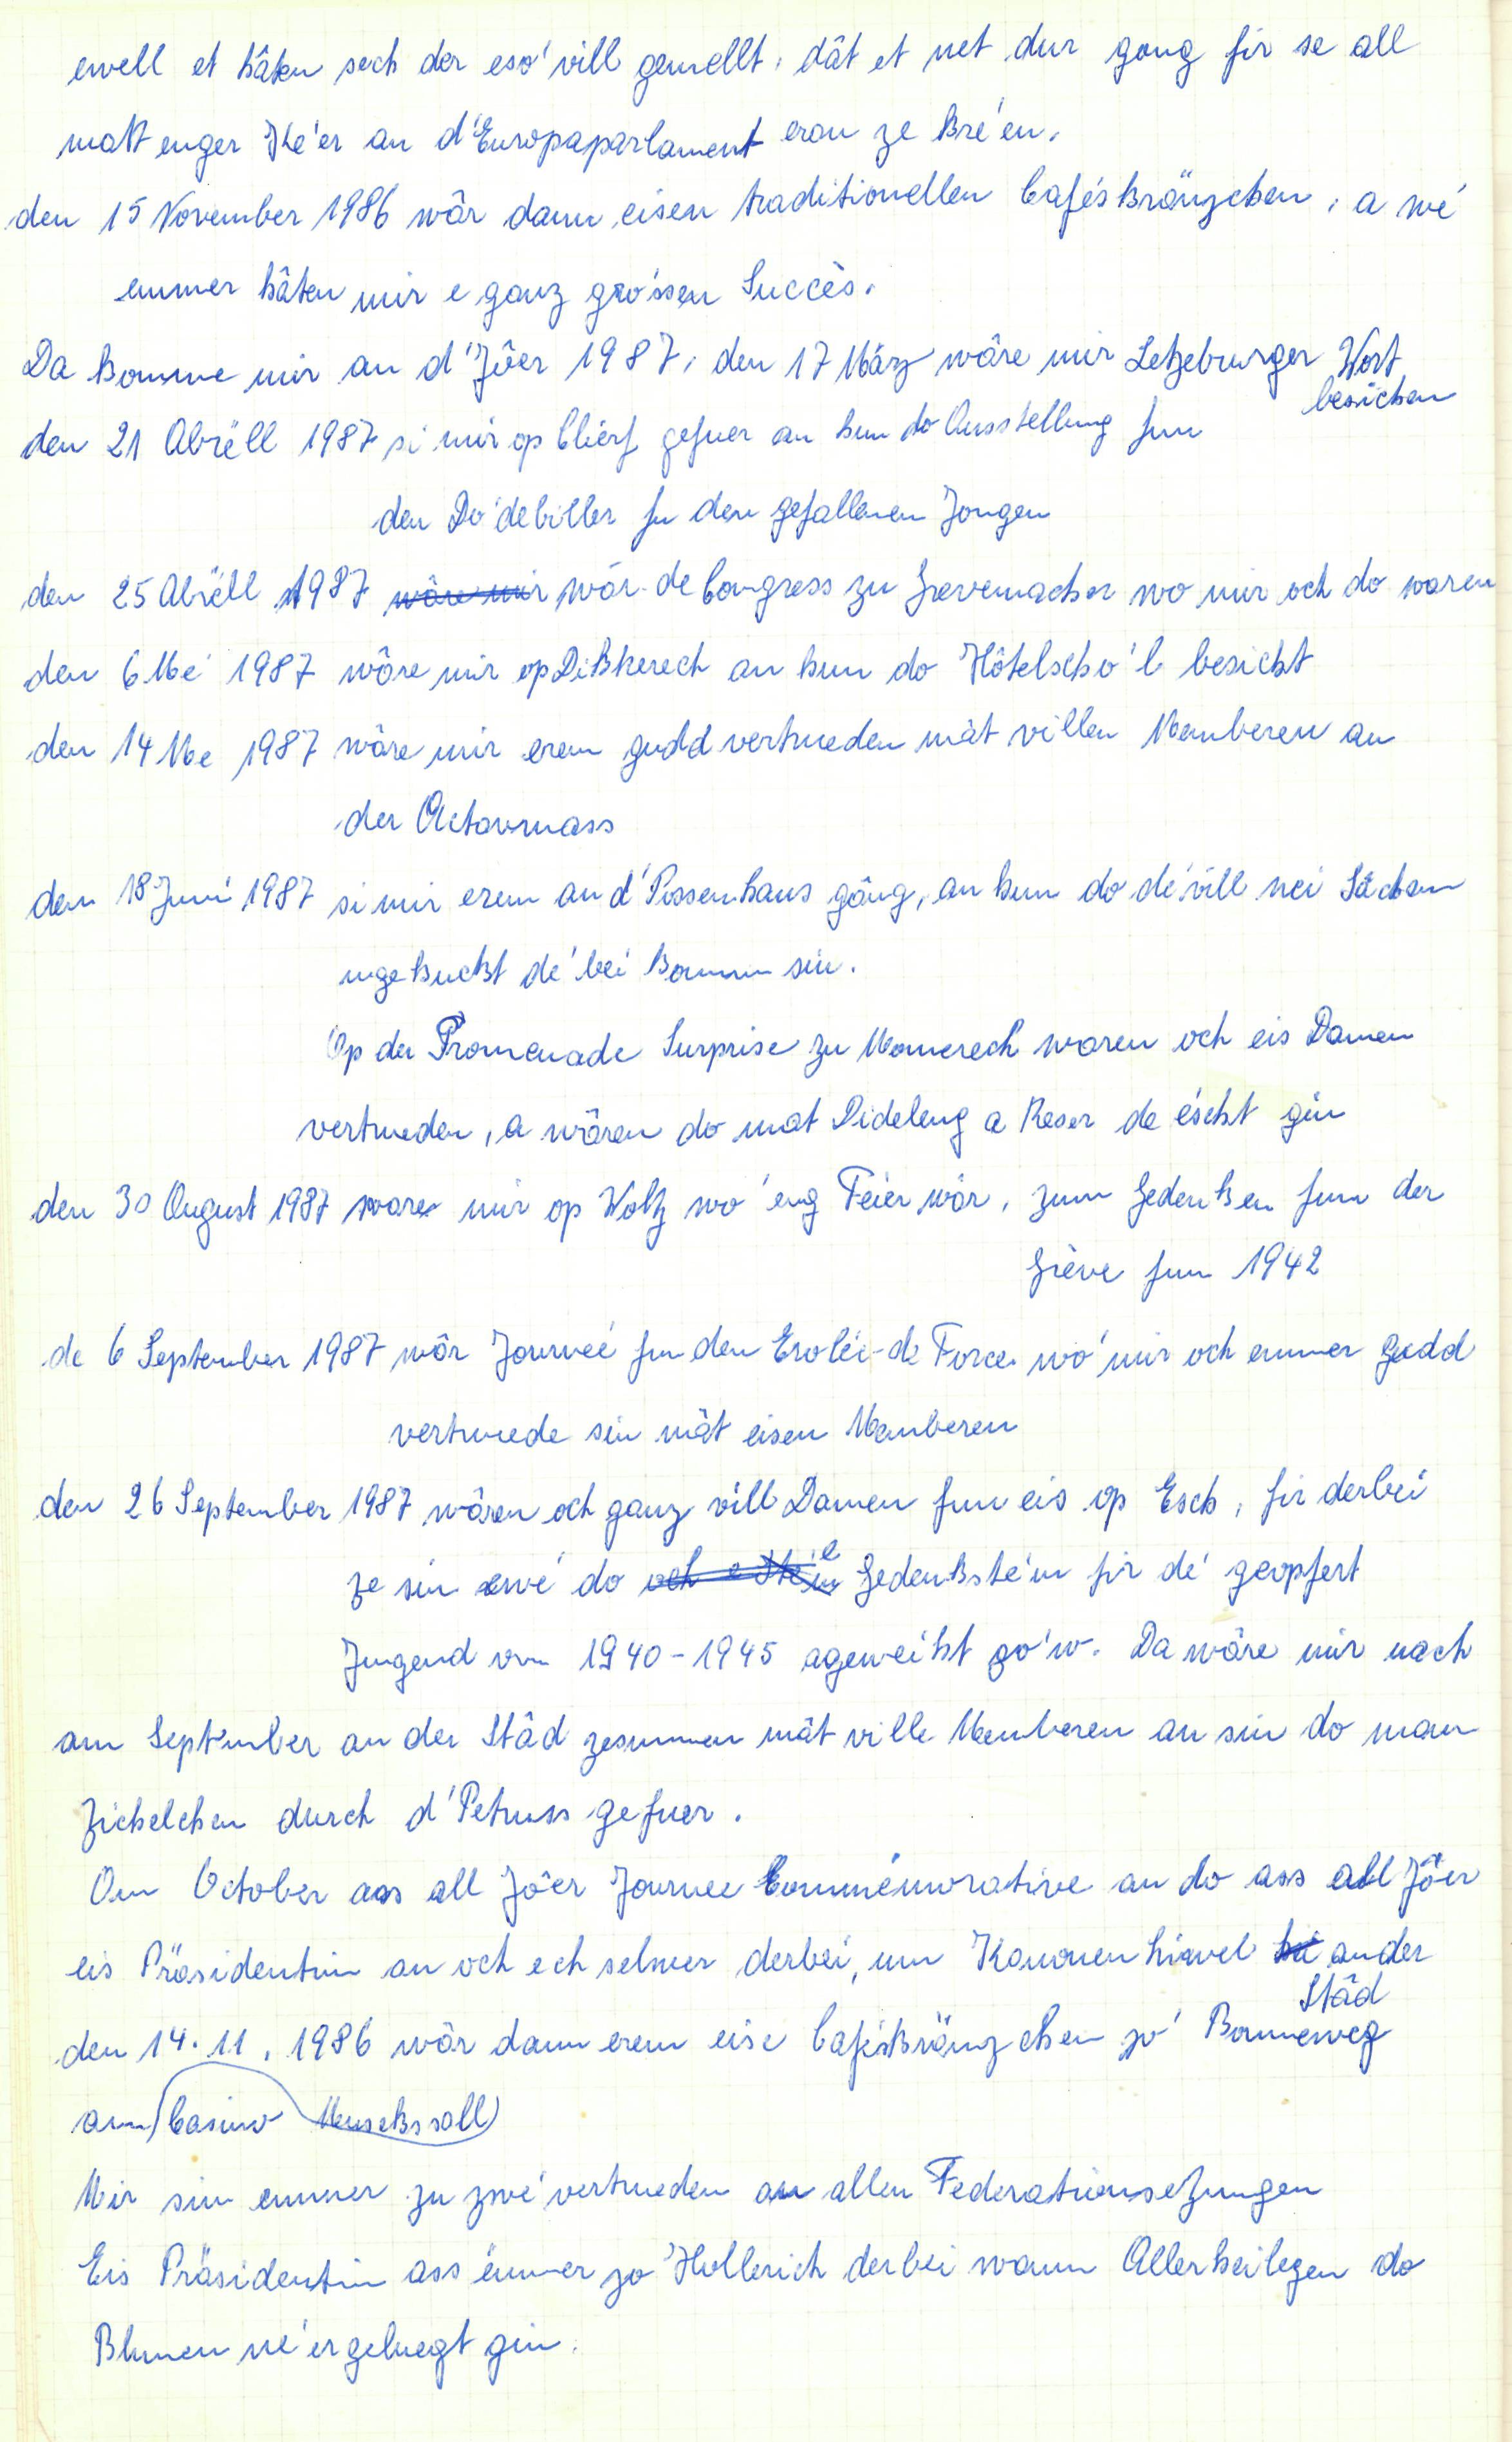 ewell et hâten sech der eso' vill gemellt, dât et net dur gong fir se all
matt enger Ke'er an d'Europaparlament eran ze kre'en.
den 15 November 1986 wâr dann eisen traditionellen Caféskränzchen, a wé
emmer hâten mir e ganz gro'ssen Succès.
Da komme mir an d'Jôer 1987, den 17 März wâre mir Letzeburger Wort
besichen
den 21 Abrëll 1987 si mir op Clierf gefuer an hun do Ausstellung fun
den Do'debiller fu den gefallenen Jongen
den 25 Abrëll 1987 wâre mir wór de Congress zu Grevemacher wo mir och do waren
den 6 Mé 1987 wôre mir op Dikkerech an hun do Hôtelscho'l besicht
den 14 Me 1987 wâre mir erem gudd vertrueden mât villen Memberen an
der Octavmass
den 18 Juni 1987 si mir erem an d'Possenhaus gâng, an hun do dé vill nei Sâchen
ugekuckt dé bei komm sin.
Op der Promenade Surprise zu Mamerech waren och eis Damen
vertrueden, a wâren do mat Dideleng a Reser de éscht gin
den 30 August 1987 ware mir op Wolz wo' eng Feier wór, zum Gedenken fun der
Grève fun 1942
de 6 September 1987 wôr Journeé fun den Eroléi-de Force wo' mir och emmer gudd
vertruede sin mât eisen Memberen
den 26 September 1987 wâren och ganz vill Damen fun eis op Esch, fir derbei
ze sin ewé do och e Stein e Gedenkste'in fir dé geopfert
Jugend vun 1940-1945 ageweiht go'w. Da wâre mir nach
am September an der Stâd zesummen mât ville Memberen an sin do mam
Zichelchen durch d'Petruss gefuer.
Am October ass all Jôer Journee Commémorative an do ass all Jôer
eis Präsidentin an och ech selwer derbei, um Kanounenhiwel an der
Stâd
den 14.11.1986 wôr dann erem eise Cafékränzchen zo' Bonneweg
am Casino Musekssall
Mir sin emmer zu zwé vertrueden an allen Federationsetzungen
Eis Präsidentin ass ëmmer zo' Hollerich derbei wann Allerheilegen do
Blumen né'ergeluegt gin.